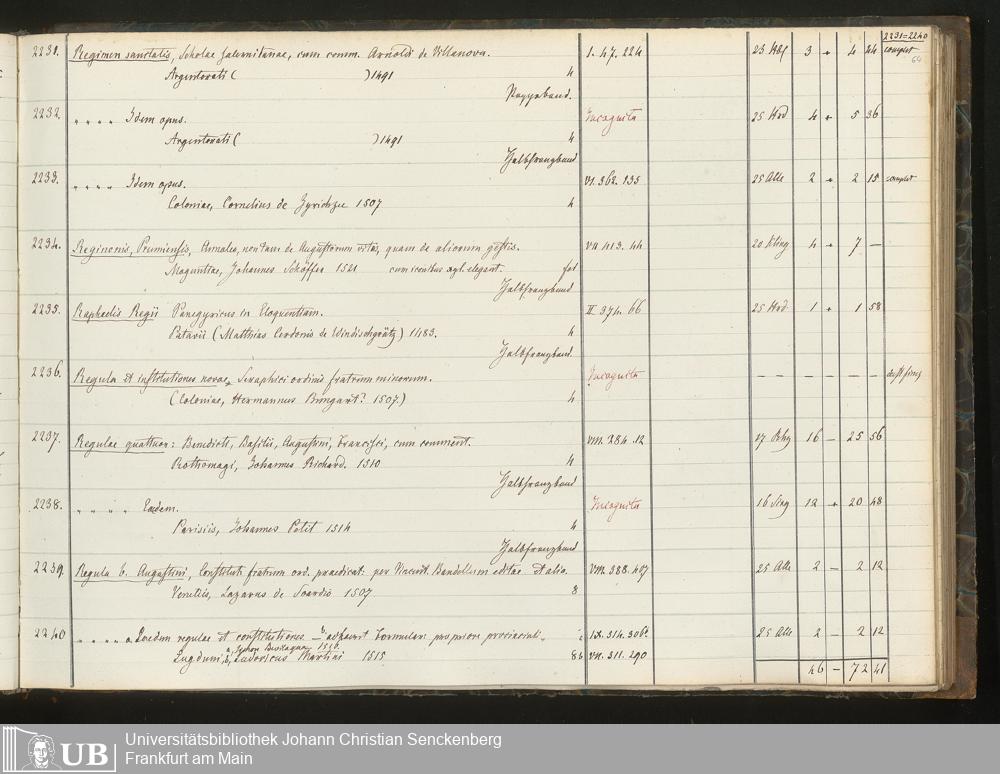 2231=2240
64
2231. Regimen sanitatis, Scholae Salernitanae, cum comm. Arnoldi de Villanova. I. 47. 224 23 3 + 4 24 complet
Argentorati ( ) 1491 4
Pappband.
2232. " " " " Idem opus. Incognita 25 4 + 5 36
Argentorati ( ) 1491 4
Halbfranzband
2233. " " " " Idem opus. VI. 362. 135 25 Alle 2 + 2 15 complet
Coloniae, Cornelius de Zyrichzee 1507 4
2234. Reginonis, Prumiensis, Annales, non tam de Augustorum vitis, quam de aliorum gestis. VII 413. 44 20 4 + 7 —
Maguntiae, Johannes Schöffer 1521 cum xyl. elegant. fol
Halbfranzband
2235. Raphaelis Regii Panegyricus in Eloquentiam. II. 374. 66 25 1 + 1 58
Patavii (Matthias Cerdonis de Windischgrätz) 1483. 4
Halbfranzband.
2236. Regula et institutiones novae, Seraphici ordinis fratrum minorum. Incognita — — — — — —
(Coloniae, Hermannus Bungart? 1507.) 4
2237. Regulae quattuor: Benedicti, Basilii, Augustini, Francisci, cum comment. VIII. 384. 12 27 16 — 25 56
Rothomagi, Johannes Richard. 1510 4
Halbfranzband
2238. " " " " Eaedem. Incognita 16 12 + 20 48
Parisiis, Johannes Petit 1514 4
Halbfranzband
2239. Regula b. Augustini, Constitut. fratrum ord. praedicat. per Vincent. Bandellum editae et alia. VIII. 388. 407 25 Alle 2 — 2 12
Venetiis, Lazarus de Soardis 1507 8
2240 " " " " a, Eaedem regulae et constitutiones — b, Formular. IX. 314. 306 25 Alle 2 — 2 12
1516.
Lugduni, b, Ludovicus Martini 1515 8 b VII. 311. 290
46 — 72 41
UB
Universitätsbibliothek Johann Christian Senckenberg
Frankfurt am Main